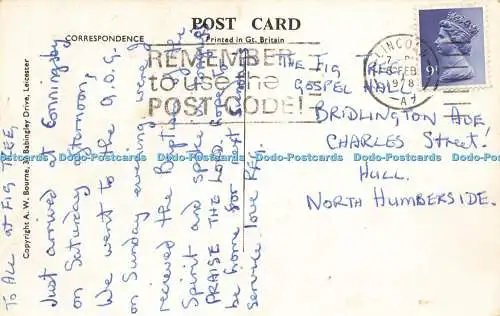 POST CARD
CORRESPONDENCE
Printed in Gt. Britain
REMEMBER
to use the
POST CODE!
LINCOLN
FEB
1978
9P
THE FIG TREE
GOSPEL HALL
BRIDLINGTON AVE
CHARLES STREET!
HULL.
NORTH HUMBERSIDE.
Copyright A. W. Bourne, Babingley Drive, Leicester
TO ALL AT FIG TREE,
Just arrived at Conningsby
on Saturday afternoon,
We went to the A.O.G.
on Sunday evening we
recieved the Baptism of the
Spirit and spoke
PRAISE THE LORD
be home for next
service. love
Dodo-Postcards Dodo-Postcards Dodo-Postcards Dodo-Postcards Dodo-Postcards Dodo-Postcards